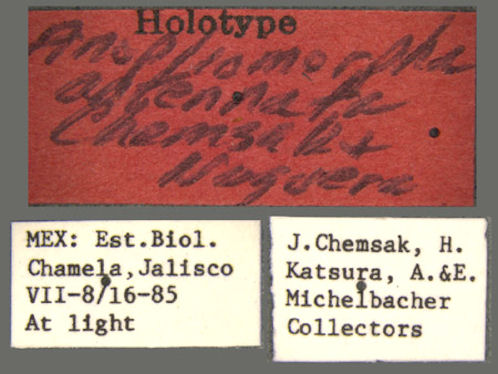 Holotype
Anopliomorpha
antennata
Chemsak &
Noguera
MEX: Est.Biol.
Chamela,Jalisco
VII-8/16-85
At light
J.Chemsak, H.
Katsura, A.&E.
Michelbacher
Collectors